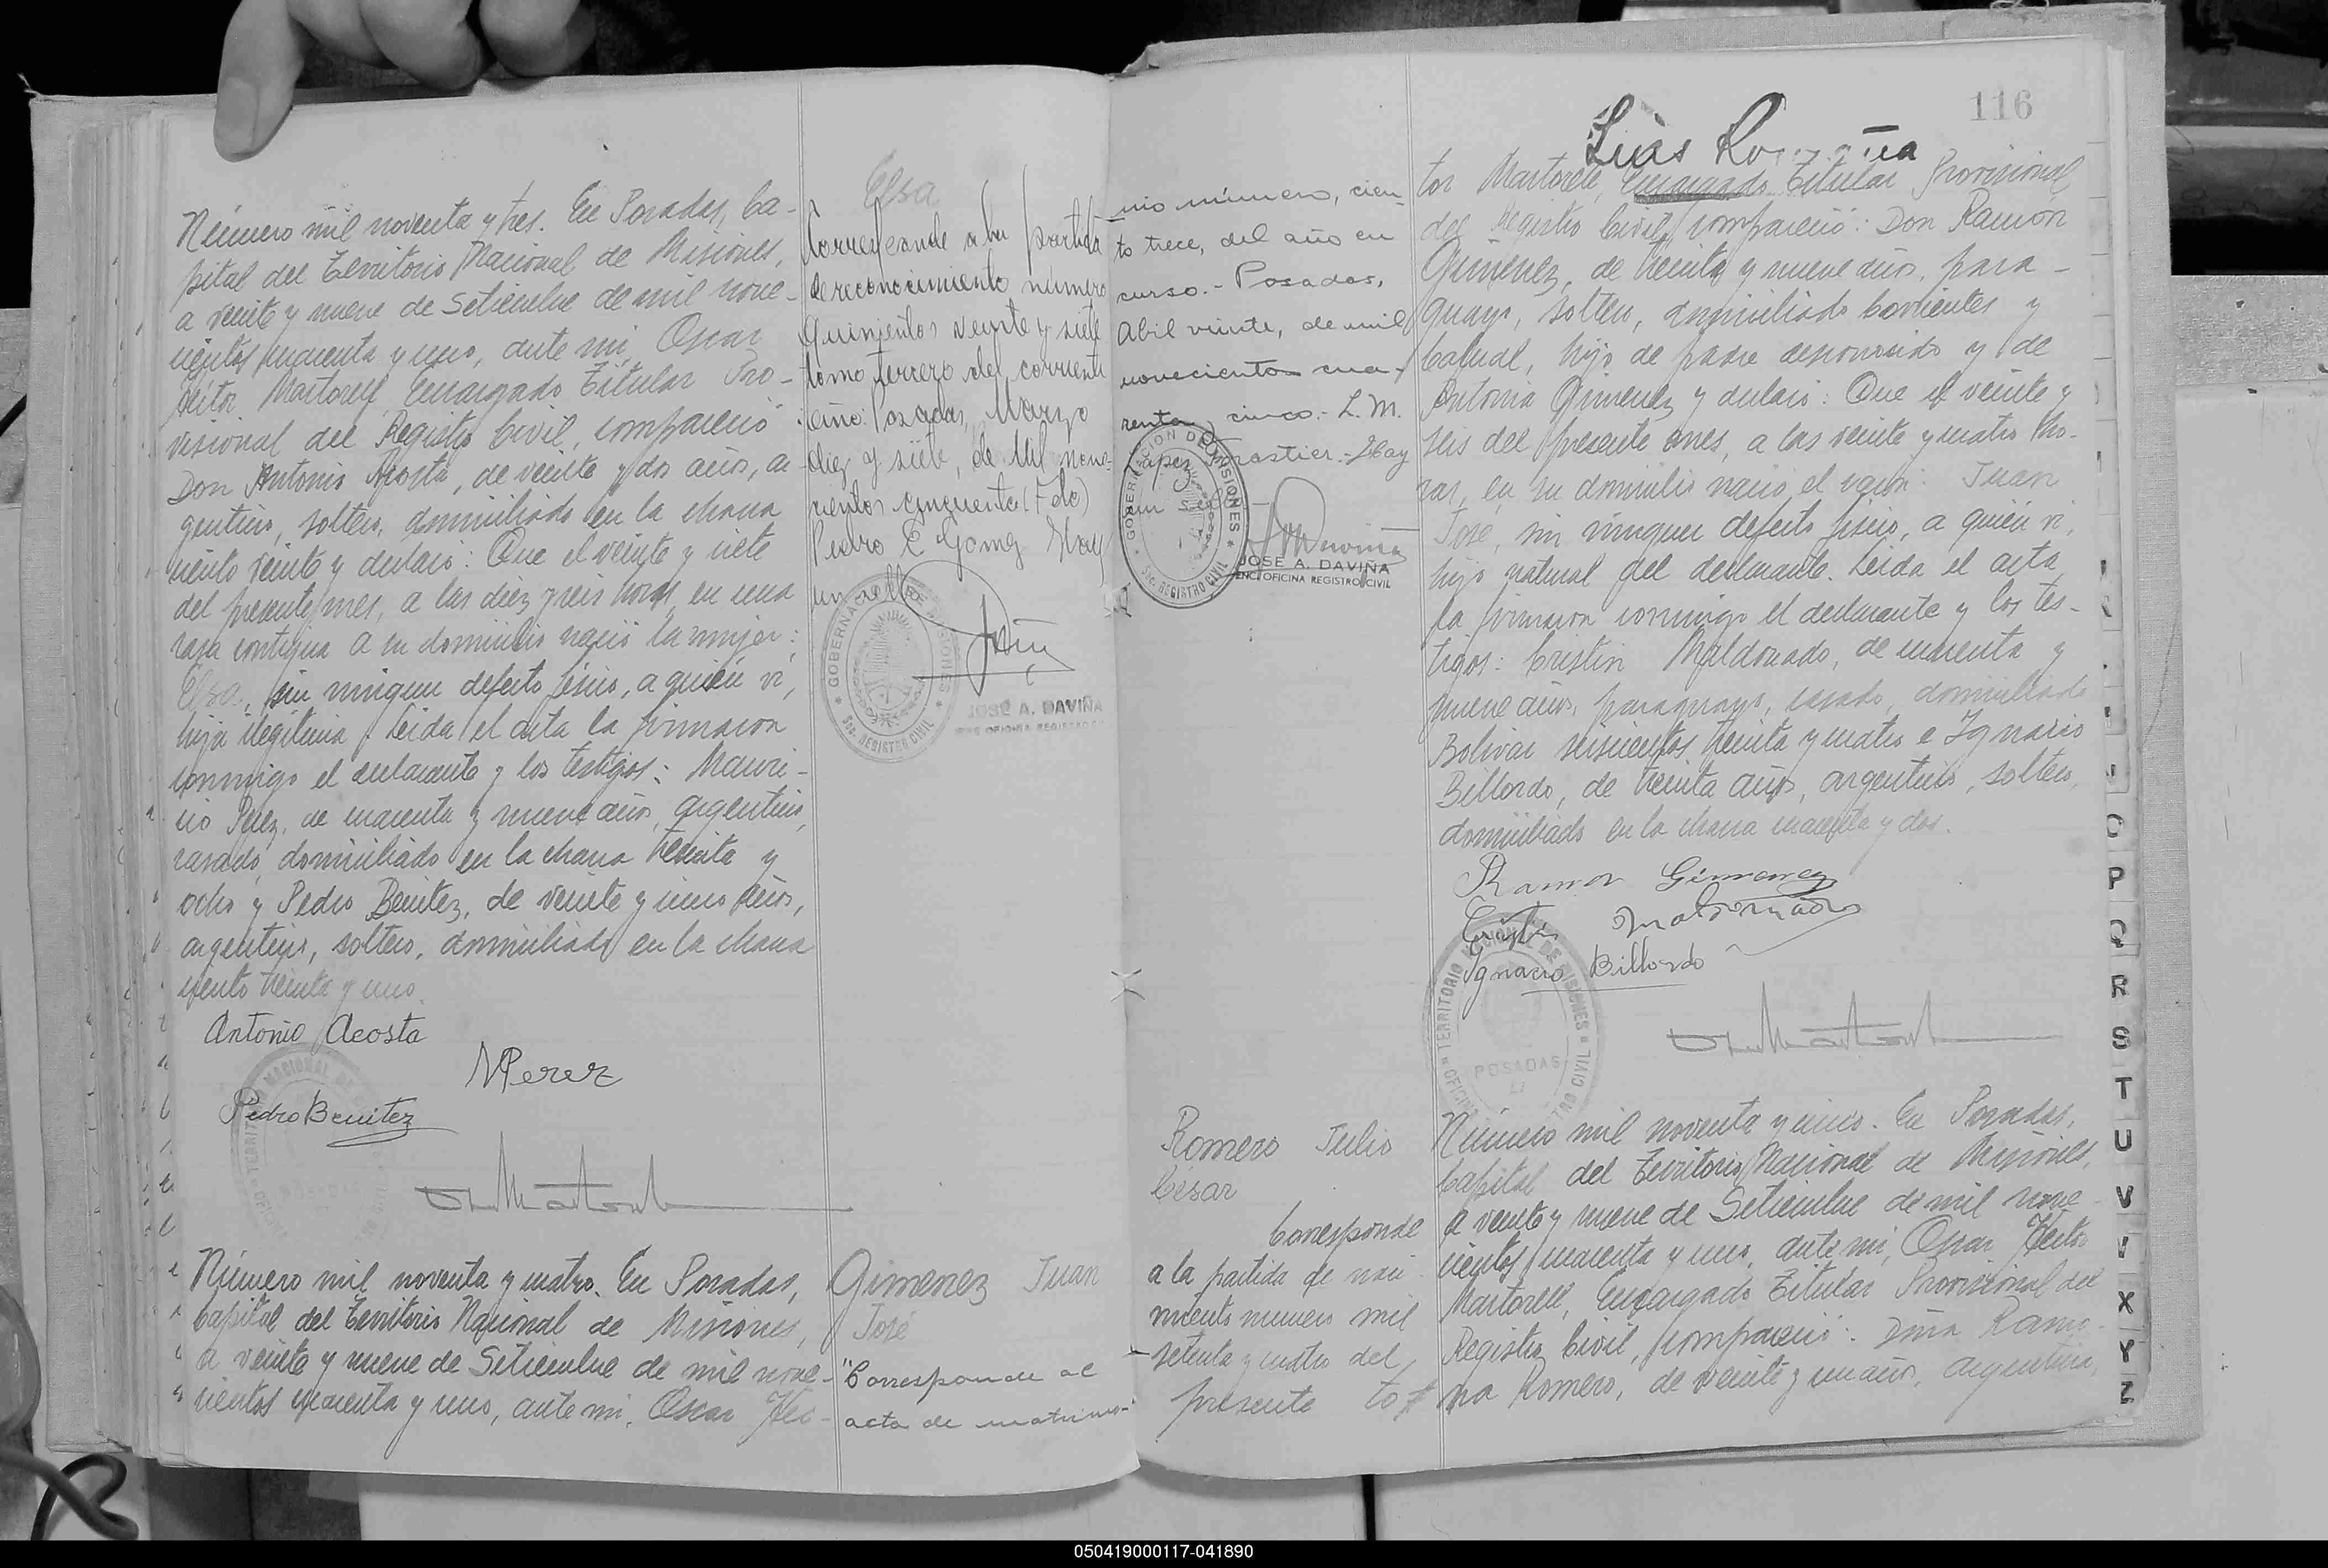 Número mil noventa y tres. En Posadas, Ca-
pital del Territorio Nacional de Misiones,
a veinte y nueve de Setiembre de mil nove-
cientos cuarenta y uno, ante mi, Oscar
Héctor Martorell, Encargado Titular Pro-
visional del Registro Civil, compareció
Don Antonio Acosta, de veinte y dos años, ar-
gentino, soltero, domiciliado en la chacra
ciento veinte y declaró: Que el veinte y siete
del presente mes, a las diez y seis horas, en una
casa contigua a su domicilio nació la mujer:
Elsa, sin ningun defecto físico, a quién vi,
hija ilegítima. Leida el acta la firmaron
conmigo el declarante y los testigos: Mauri-
cio Perez, de cuarenta y nueve años, argentino,
casado, domiciliado en la chacra treinta y
ocho y Pedro Benitez, de veinte y uno años,
argentino, soltero, domiciliado en la chacra
ciento treinta y uno.
Antonio Acosta
MPerez
Pedro Benitez
Elsa
Corresponde a la partida
de reconocimiento número
Quinientos veinte y siete
tomo tercero del corriente
año: Posadas, Marzo
diez y siete, de Mil nove-
cientos cincuenta (Fdo)
Pedro E Gomez Hay
un sello
GOBERNACION DE MISIONES
Sec. REGISTRO CIVIL
JOSE A. DAVIÑA
Número mil noventa y cuatro. En Posadas,
Capital del Territorio Nacional de Misiones,
a veinte y nueve de Setiembre de mil nove-
cientos cuarenta y uno, ante mi, Oscar Héc-
Gimenez Juan
José
"Corresponde al
acta de matrimo-
nio número, cien-
to trece, del año en
curso.- Posadas,
Abril veinte, de mil
novecientos cua-
renta y cinco.- L. M.
Lopez Forastier.- Hay
un sello
GOBERNACION DE MISIONES
Sec. REGISTRO CIVIL
JOSE A. DAVIÑA
ENC. OFICINA REGISTRO CIVIL
116
tor Martorell, Encargado Titular Provisional
del Registro Civil, compareció: Don Ramón
Giménez, de treinta y nueve años, para-
guayo, soltero, domiciliado Corrientes y
Catual, hijo de padre desconocido y de
Antonia Gimenez y declaró: Que el veinte y
seis del presente mes, a las veinte y cuatro ho-
ras, en su domicilio nació el varon: Juan
José, sin ningun defecto físico, a quién vi,
hijo natural del declarante. Leida el acta
la firmaron conmigo el declarante y los tes-
tigos: Cristin Maldonado, de cuarenta y
nueve años, paraguayo, casado, domiciliado
Bolivar seiscientos treinta y cuatro e Ignacio
Billordo, de treinta años, argentino, soltero,
domiciliado en la chacra cuarenta y dos.
Ramon Gimenez
Cristin Maldonado
Ignacio Billordo
TERRITORIO NACIONAL DE MISIONES
POSADAS
Romero Julio
César
Corresponde
a la partida de naci-
miento numero mil
setenta y cuatro del
presente to
Número mil noventa y cinco. En Posadas,
Capital del Territorio Nacional de Misiones,
a veinte y nueve de Setiembre de mil nove-
cientos cuarenta y uno, ante mi, Oscar Héctor
Martorell, Encargado Titular Provisional del
Registro Civil, compareció: Doña Ramo-
na Romero, de veinte y un años, argentina,
O
P
Q
R
S
T
U
V
X
Y
Z
050419000117-041890